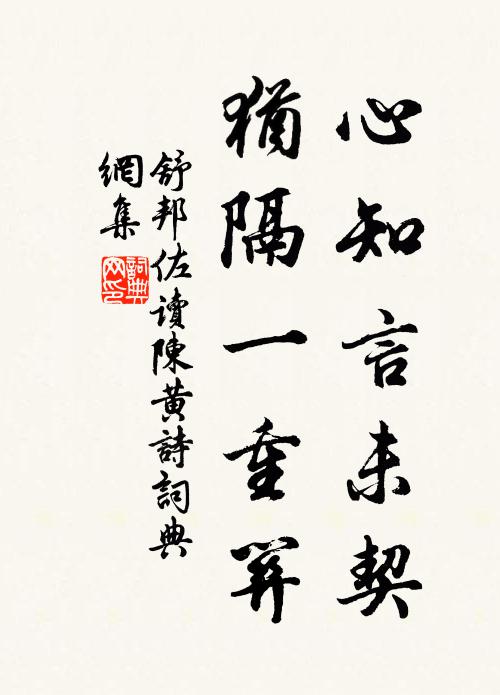 心知言未契
猶隔一重關
舒邦佐讀陳黃詩詞典
網集
詞典網印